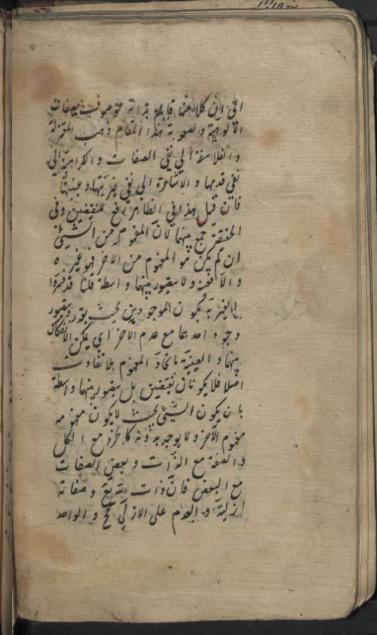 الى ان كلا منها قايم بذاته موصوف بصفات
الالوهية ولصعوبة هذا المقام ذهب المعتزلة
والفلاسفة الى نفى الصفات والكرامية الى
نفى قدمها والاشاعرة الى نفى غيريتها وعينيتها
فان قيل هذا فى الظاهر رفع للنقيضين وفى
الحقيقة جمع بينهما لان المفهوم من الشئ
ان لم يكن هو المفهوم من الاخر فهو غيره
والا فعينه ولا يتصور بينهما واسطة قلنا قد فسروا
الغيرية بكون الموجودين بحيث يقدر ويتصور
وجود احدهما مع عدم الاخر اى يمكن الانفكاك
بينهما والعينية باتحاد المفهوم بلا تفاوت
اصلا فلا يكونان نقيضين بل يتصور بينهما واسطة
بان يكون الشئ بحيث لا يكون مفهومه
مفهوم الاخر ولا يوجد بدونه كالجزء مع الكل
والصفة مع الذات وبعض الصفات
مع البعض فان ذات الله تع وصفاته
ازلية والعدم على الازلى مح والواحد